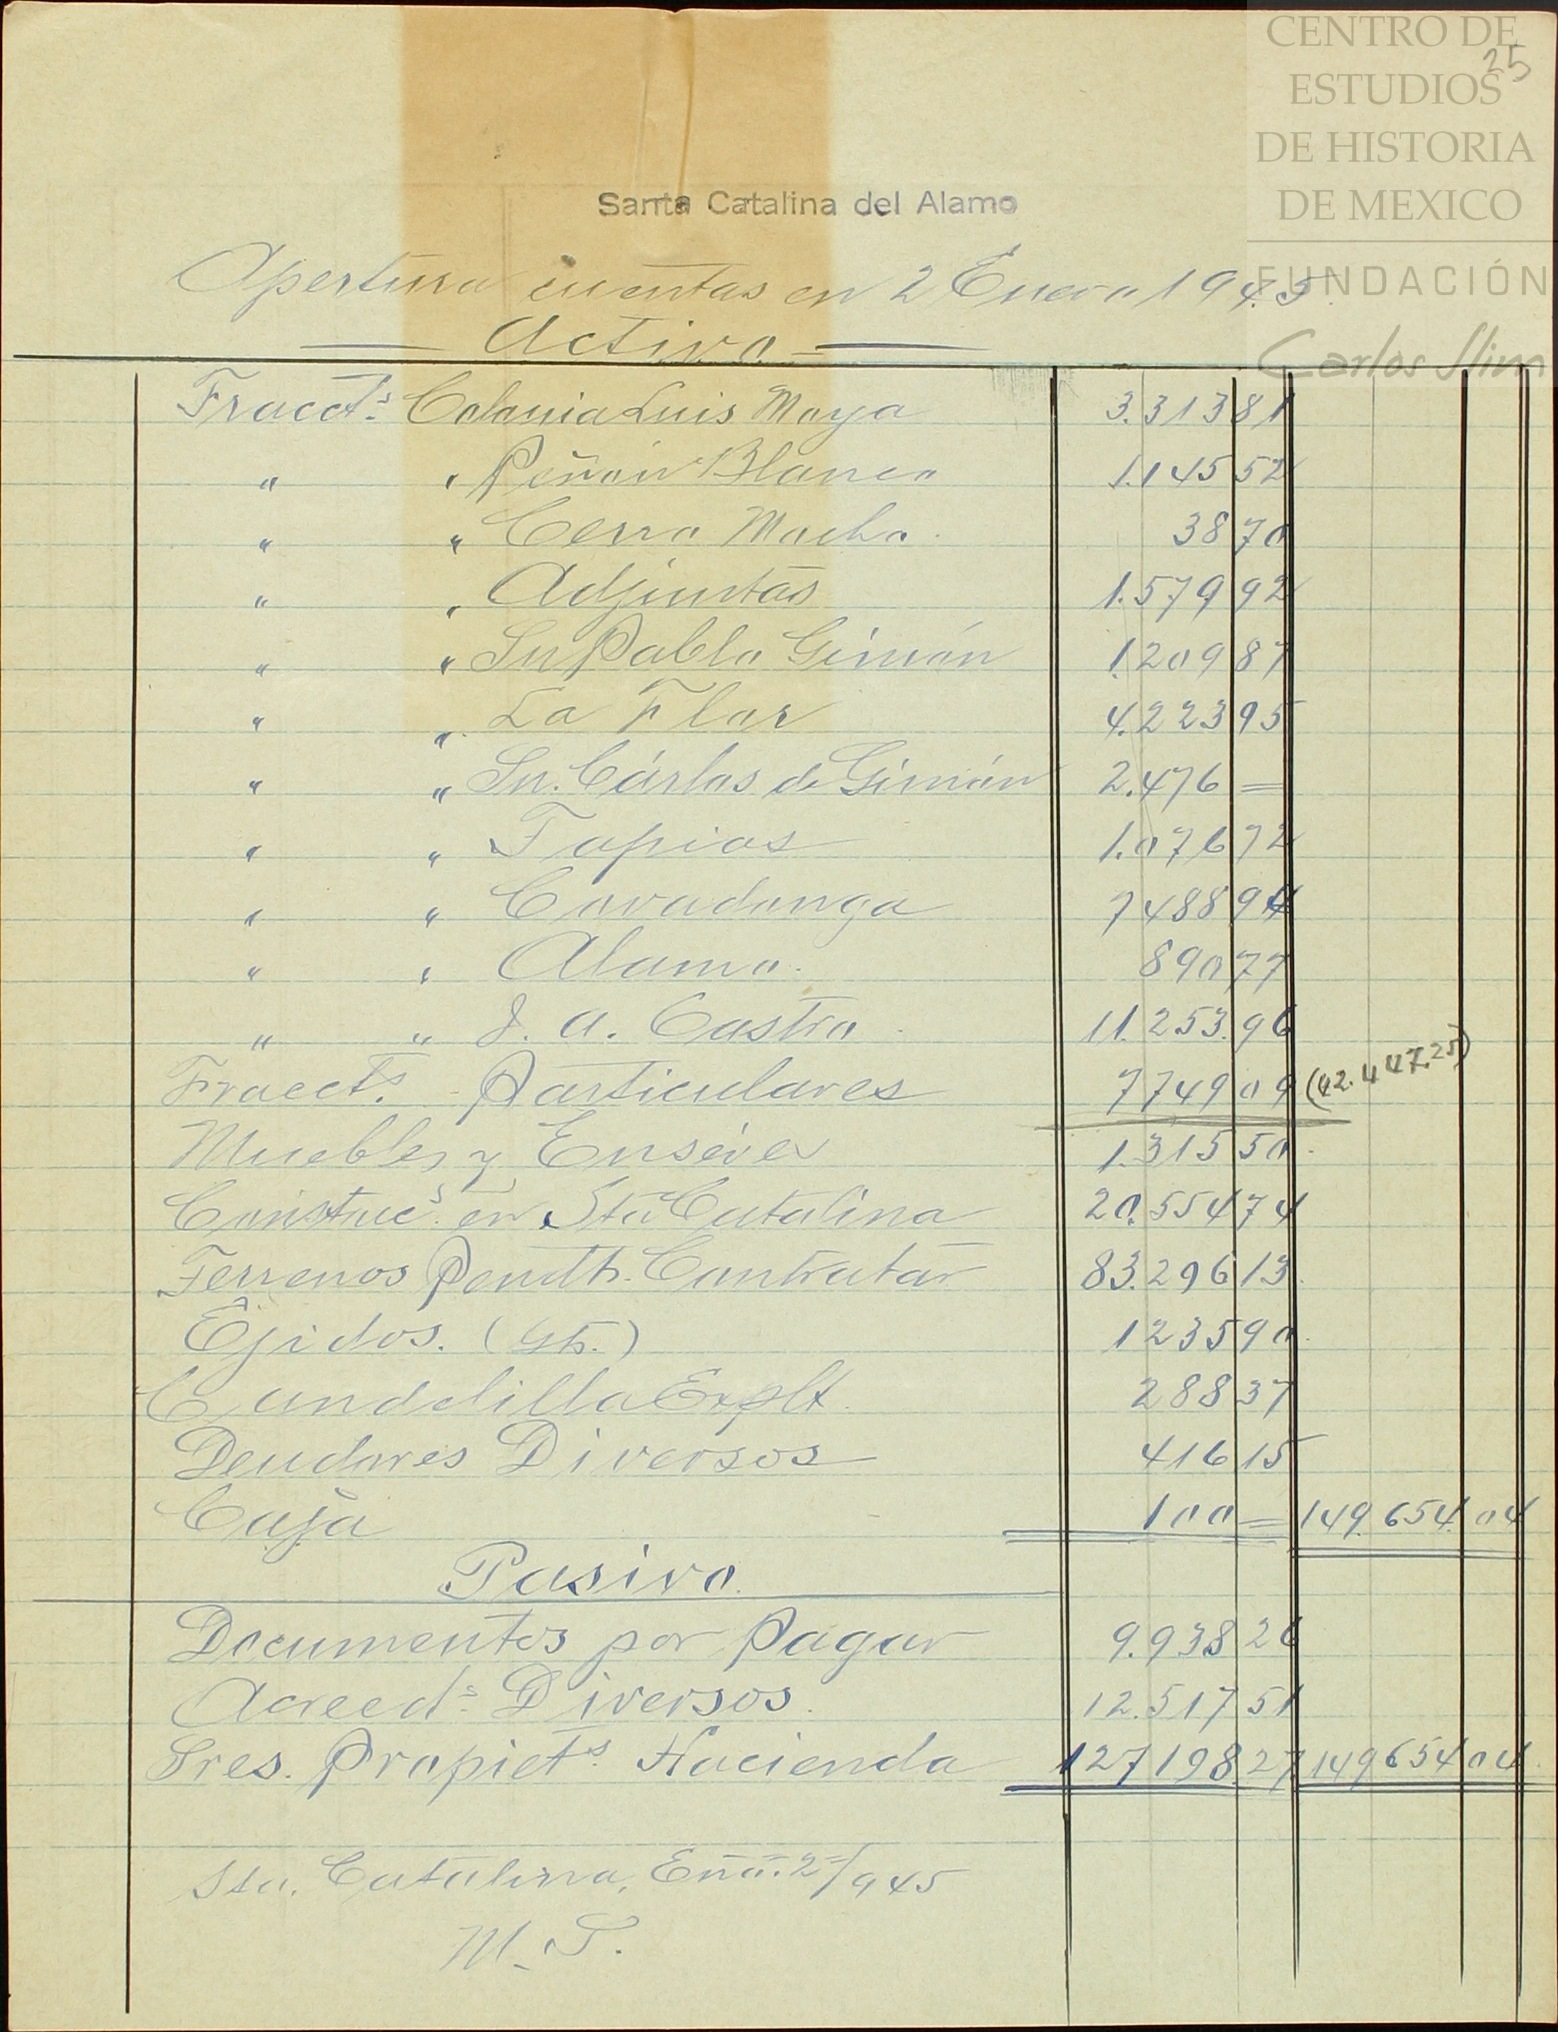 CENTRO DE
ESTUDIOS
DE HISTORIA
DE MEXICO
FUNDACIÓN
Carlos Slim
25
Santa Catalina del Alamo
Apertura cuentas en 2 Enero 1945
Activo
Fracct.s Colonia Luis Moya 3.313 81
" " Peñón Blanco 1.145 52
" " Cerro Mocho. 38 70
" " Adjuntas 1.579 92
" " Sn Pablo Gimón 1.209 87
" " La Flor 4.223 95
" " Sn. Cárlos de Gimón 2.476 =
" " Tapias 1.076 72
" " Covadonga 7488 94
" " Alamo. 890 77
" " J. A. Castro. 11.253.96
Fracct.s Particulares 7749 09 (42.447.25)
Muebles y Enséres 1.315 50
Construc.s en Sta Catalina 20.554 74
Terrenos Pendth. Contratar 83.296 13
Ejidos. ( ) 1235 90
Candelilla Explt. 288 37
Deudores Diversos 416 15
Caja 100 = 149.654 04
Pasivo.
Documentos por Pagar 9.938 26
Acreed.s Diversos. 12.517 51
Sres. Propiet.s Hacienda 127198.27 149654 04
Sta. Catalina, Eno. 2/945
M. T.